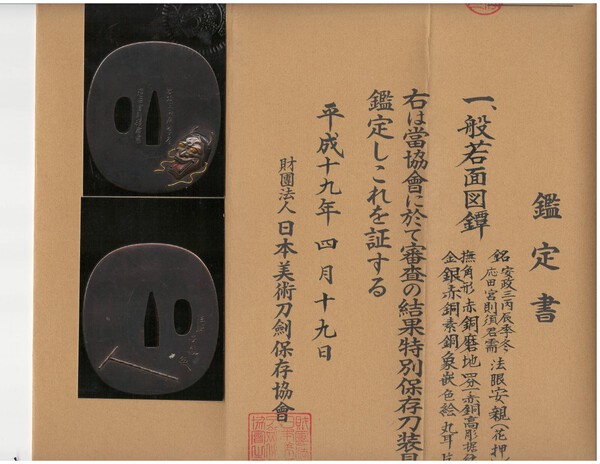 鑑定書
一、般若面図鐔
銘 安政三丙辰季冬 法眼安親(花押)
應田宮則須君需
撫角形 赤銅磨地 四分一赤銅高彫据紋
金銀赤銅素銅象嵌色絵 丸耳 片
右は當協會に於て審査の結果特別保存刀装具
鑑定しこれを証する
平成十九年四月十九日
財團法人 日本美術刀劍保存協會